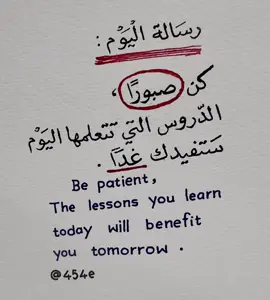 رسالة الْيَوْم :
كن صبورًا ،
الدّروس التي تتعلمها اليَوْم
ستفيدك غدًا .
Be patient,
The lessons you learn
today will benefit
you tomorrow .
@454e